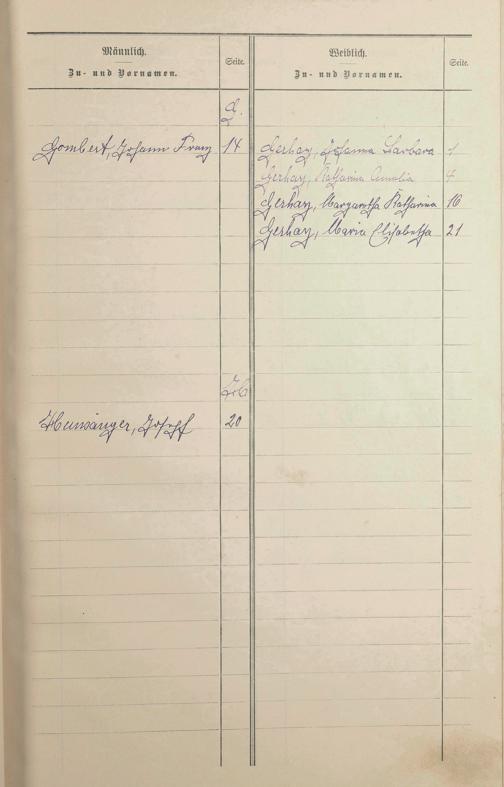 Männlich.
Zu- und Vornamen.
Seite.
Weiblich.
Zu- und Vornamen.
Seite.
G.
Gombert, Johann Franz 14
Gerhay, Johanna Barbara 1
Gerhay, Katharina Amalia 4
Gerhay, Margaretha Katharina 16
Gerhay, Maria Elisabetha 21
H.
Heunsänger, Joseph 20